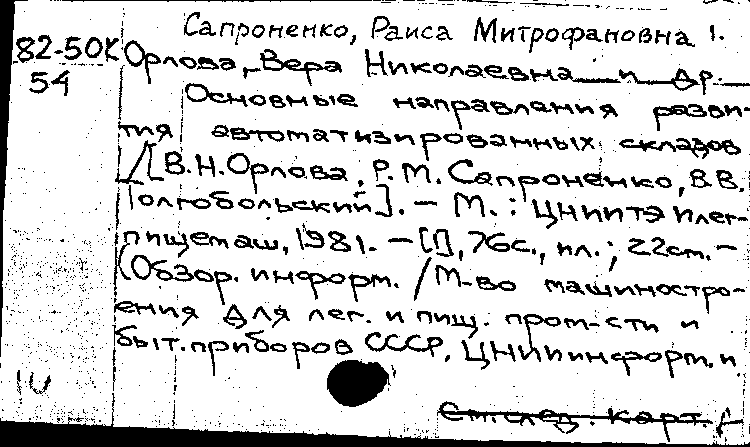 Сапроненко, Раиса Митрофановна 1.
82-50К Орлова, Вера Николаевна и др.
54
Основные направления разви-
тия автоматизированных складов
/[В.Н.Орлова, Р.М.Сапроненко, В.В.
Толгобольский]. – М.: ЦНИИТЭИлег-
пищемаш, 1981. – [1], 76с., ил.; 22см. –
(Обзор. информ. / М-во машиностро-
ения для лег. и пищ. пром-сти и
быт. приборов СССР, ЦНИИинформ. и
См. след. карт.